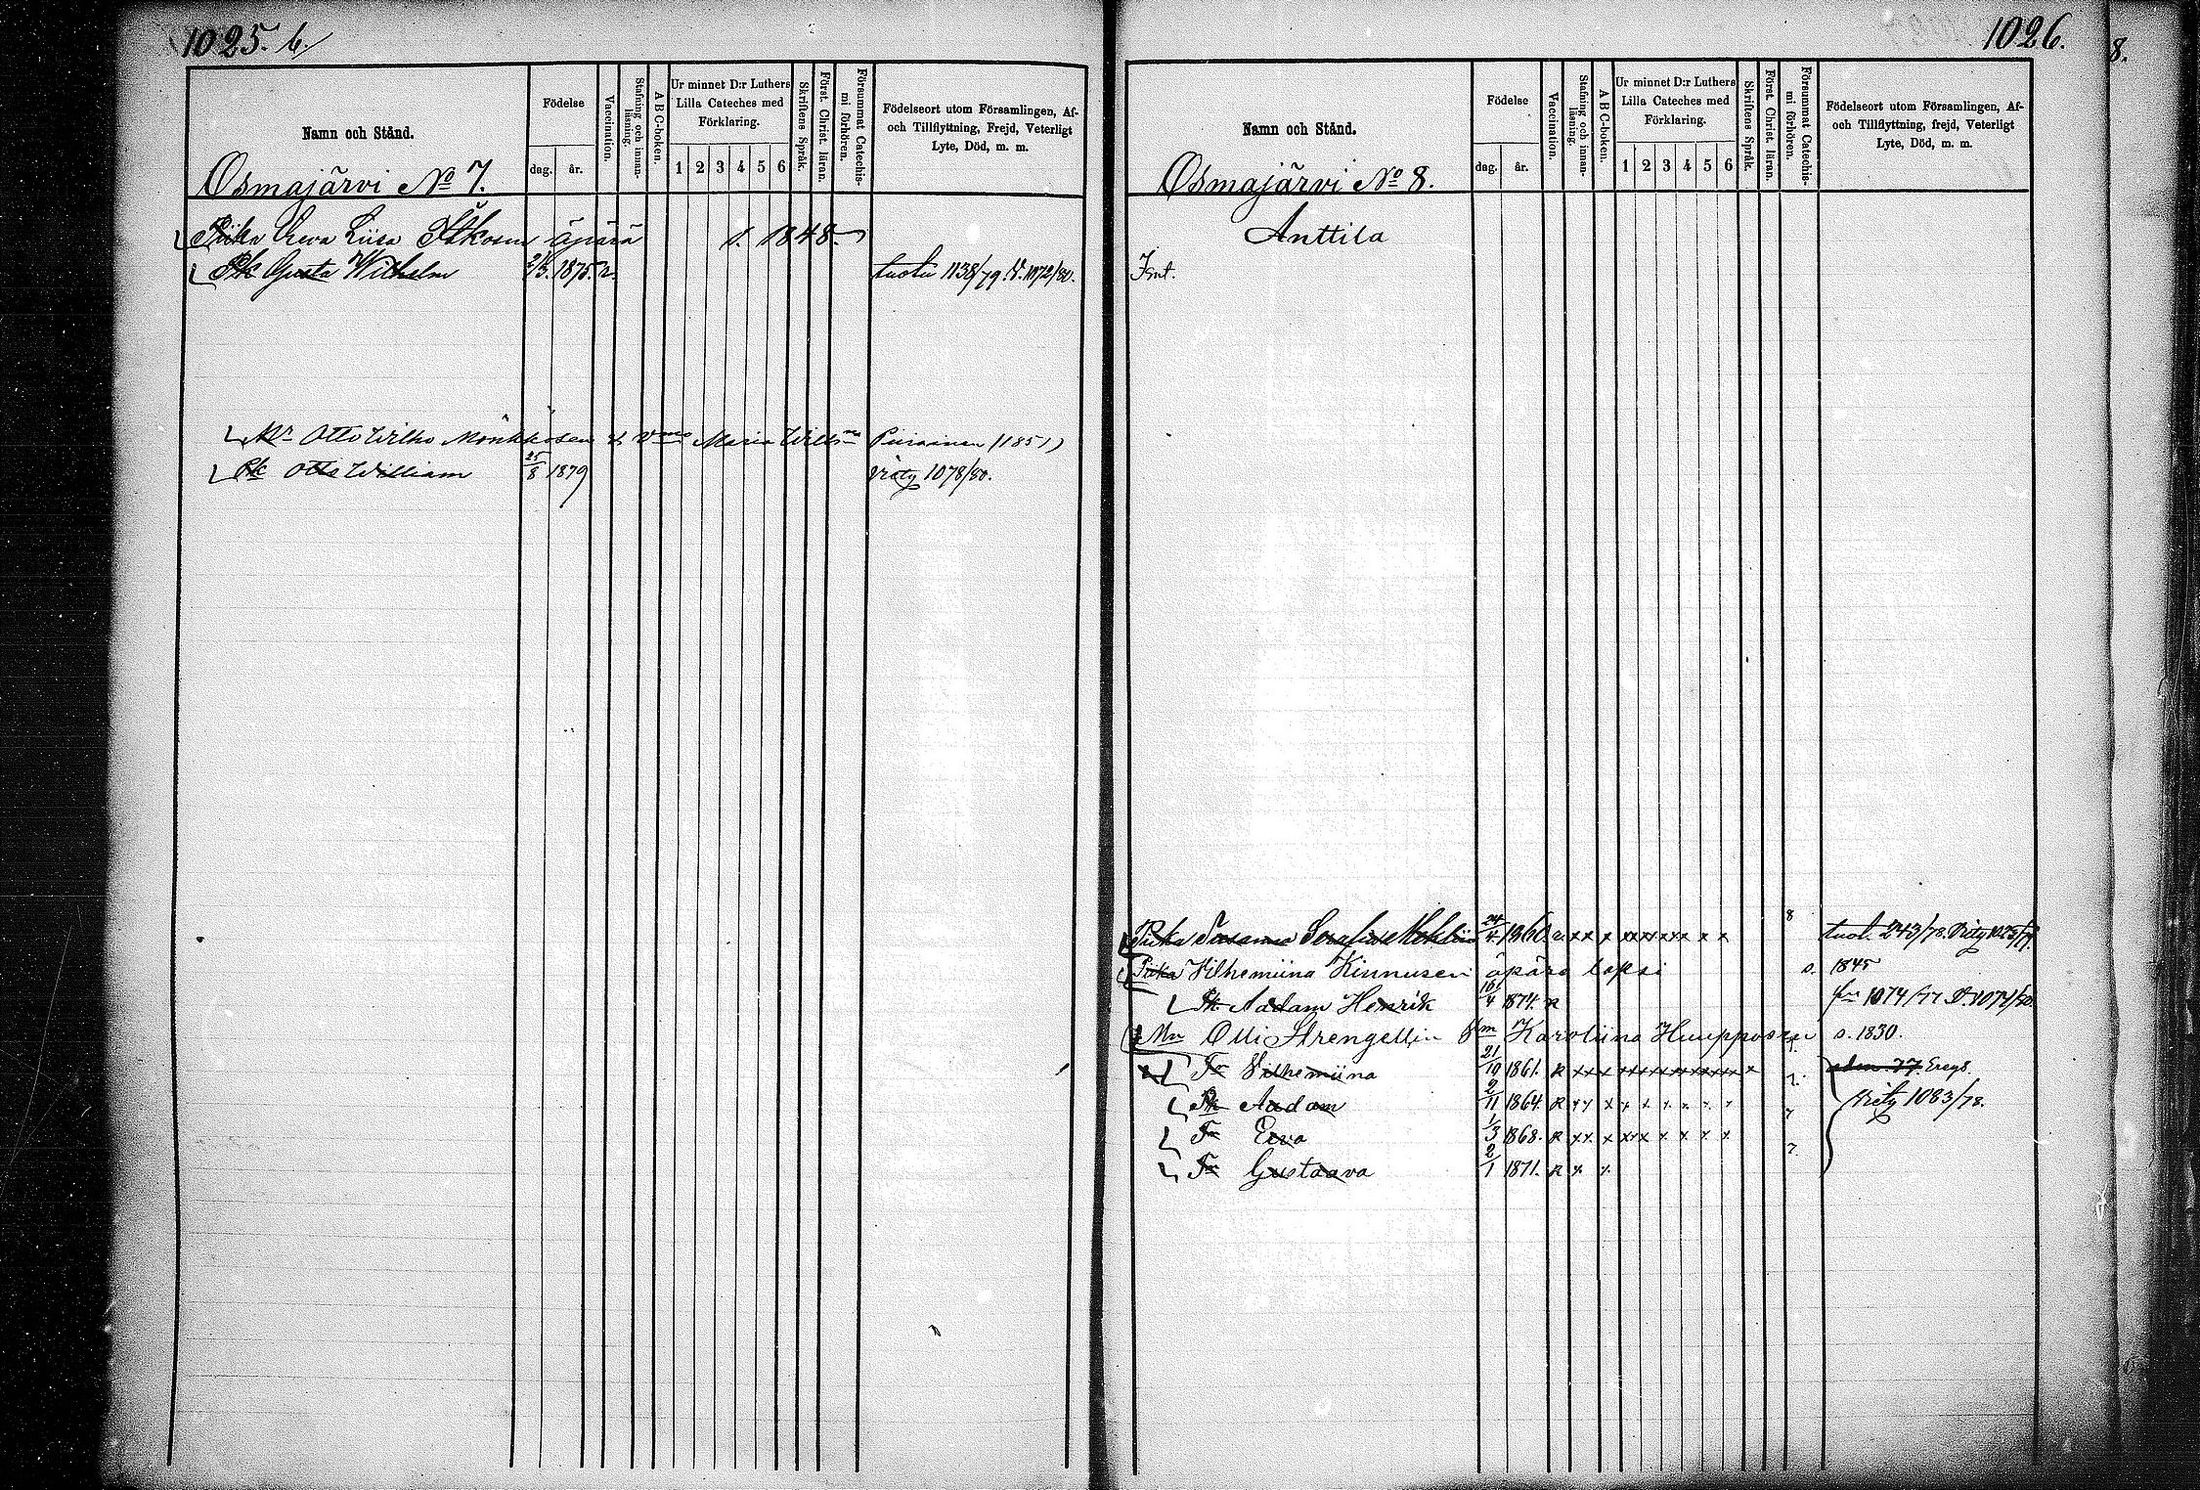 1025. b.
Namn och Stånd.
Födelse
dag.
år.
Vaccination.
Stafning och innan-läsning.
A B C-boken.
Ur minnet D:r Luthers
Lilla Cateches med
Förklaring.
1 2 3 4 5 6
Skriftens Språk.
Först. Christ. läran.
Försummat Catechis-
mi förhören.
Födelseort utom Församlingen, Af-
och Tillflyttning, Frejd, Veterligt
Lyte, Död, m. m.
Osmajärvi No 7.
Piika Eeva Liisa äpärä s. 1848.
Pk Gusta Wilhelm 2/3. 1875. tuotu 1138/79. 1072/80.
Otto Wilho Mönkkösen & Maria Piirainen (1851)
Pk Otto William 25/8 1879 1078/80.
1026.
8.
Namn och Stånd.
Födelse
dag.
år.
Vaccination.
Stafning och innan-läsning.
A B C-boken.
Ur minnet D:r Luthers
Lilla Cateches med
Förklaring.
1 2 3 4 5 6
Skriftens Språk.
Först. Christ. läran.
Försummat Catechis-
mi förhören.
Födelseort utom Församlingen, Af-
och Tillflyttning, frejd, Veterligt
Lyte, Död, m. m.
Osmajärvi No 8.
Anttila
Piika Susanna 24/4 1860. x x x x x x x x x x x 8 tuol. 243/78.
Piika Vilhemiina Kinnusen äpäre lapsi s. 1845
Pk Aadam Henrik 4 1874. R 1074/77
Mn Olli Strengellin Karoliina Huupposen s. 1830.
Tr Vilhemiina 21/10 1861. R x x x x x x x x x x x x
Pk Aadam 2/11 1864. R x x x x x x x x x 1083/78.
Tr Eeva 1/3 1868. R x x x x x x x x x x
Tr Gustaava 2/1 1871. R x x